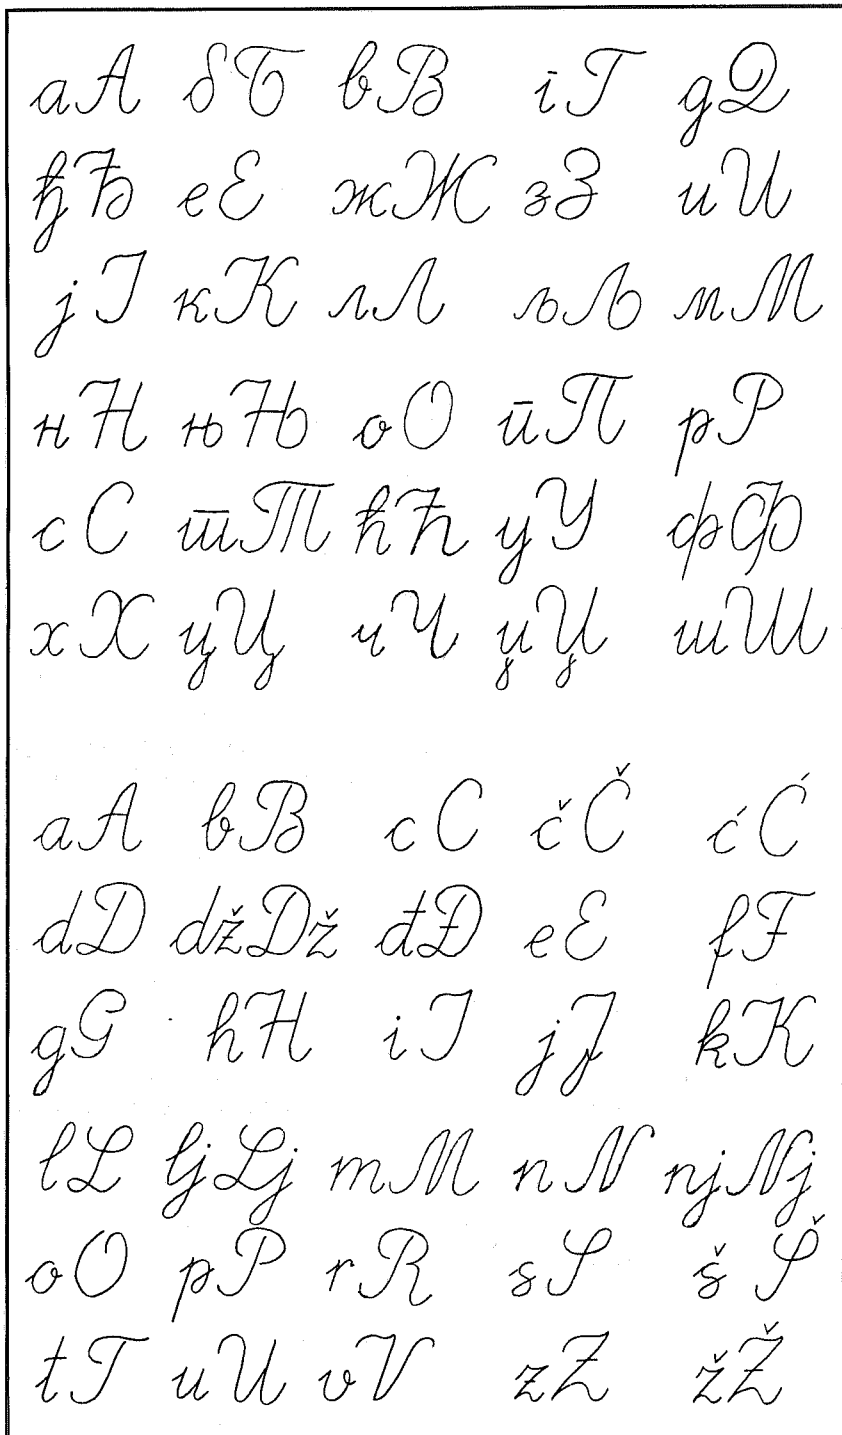 аА бБ вВ гГ дД
ђЂ еЕ жЖ зЗ иИ
јЈ кК лЛ љЉ мМ
нН њЊ оО пП рР
сС тТ ћЋ уУ фФ
хХ цЦ чЧ џЏ шШ
aA bB cC čČ ćĆ
dD džDž đĐ eE fF
gG hH iI jJ kK
lL ljLj mM nN njNj
oO pP rR sS šŠ
tT uU vV zZ žŽ